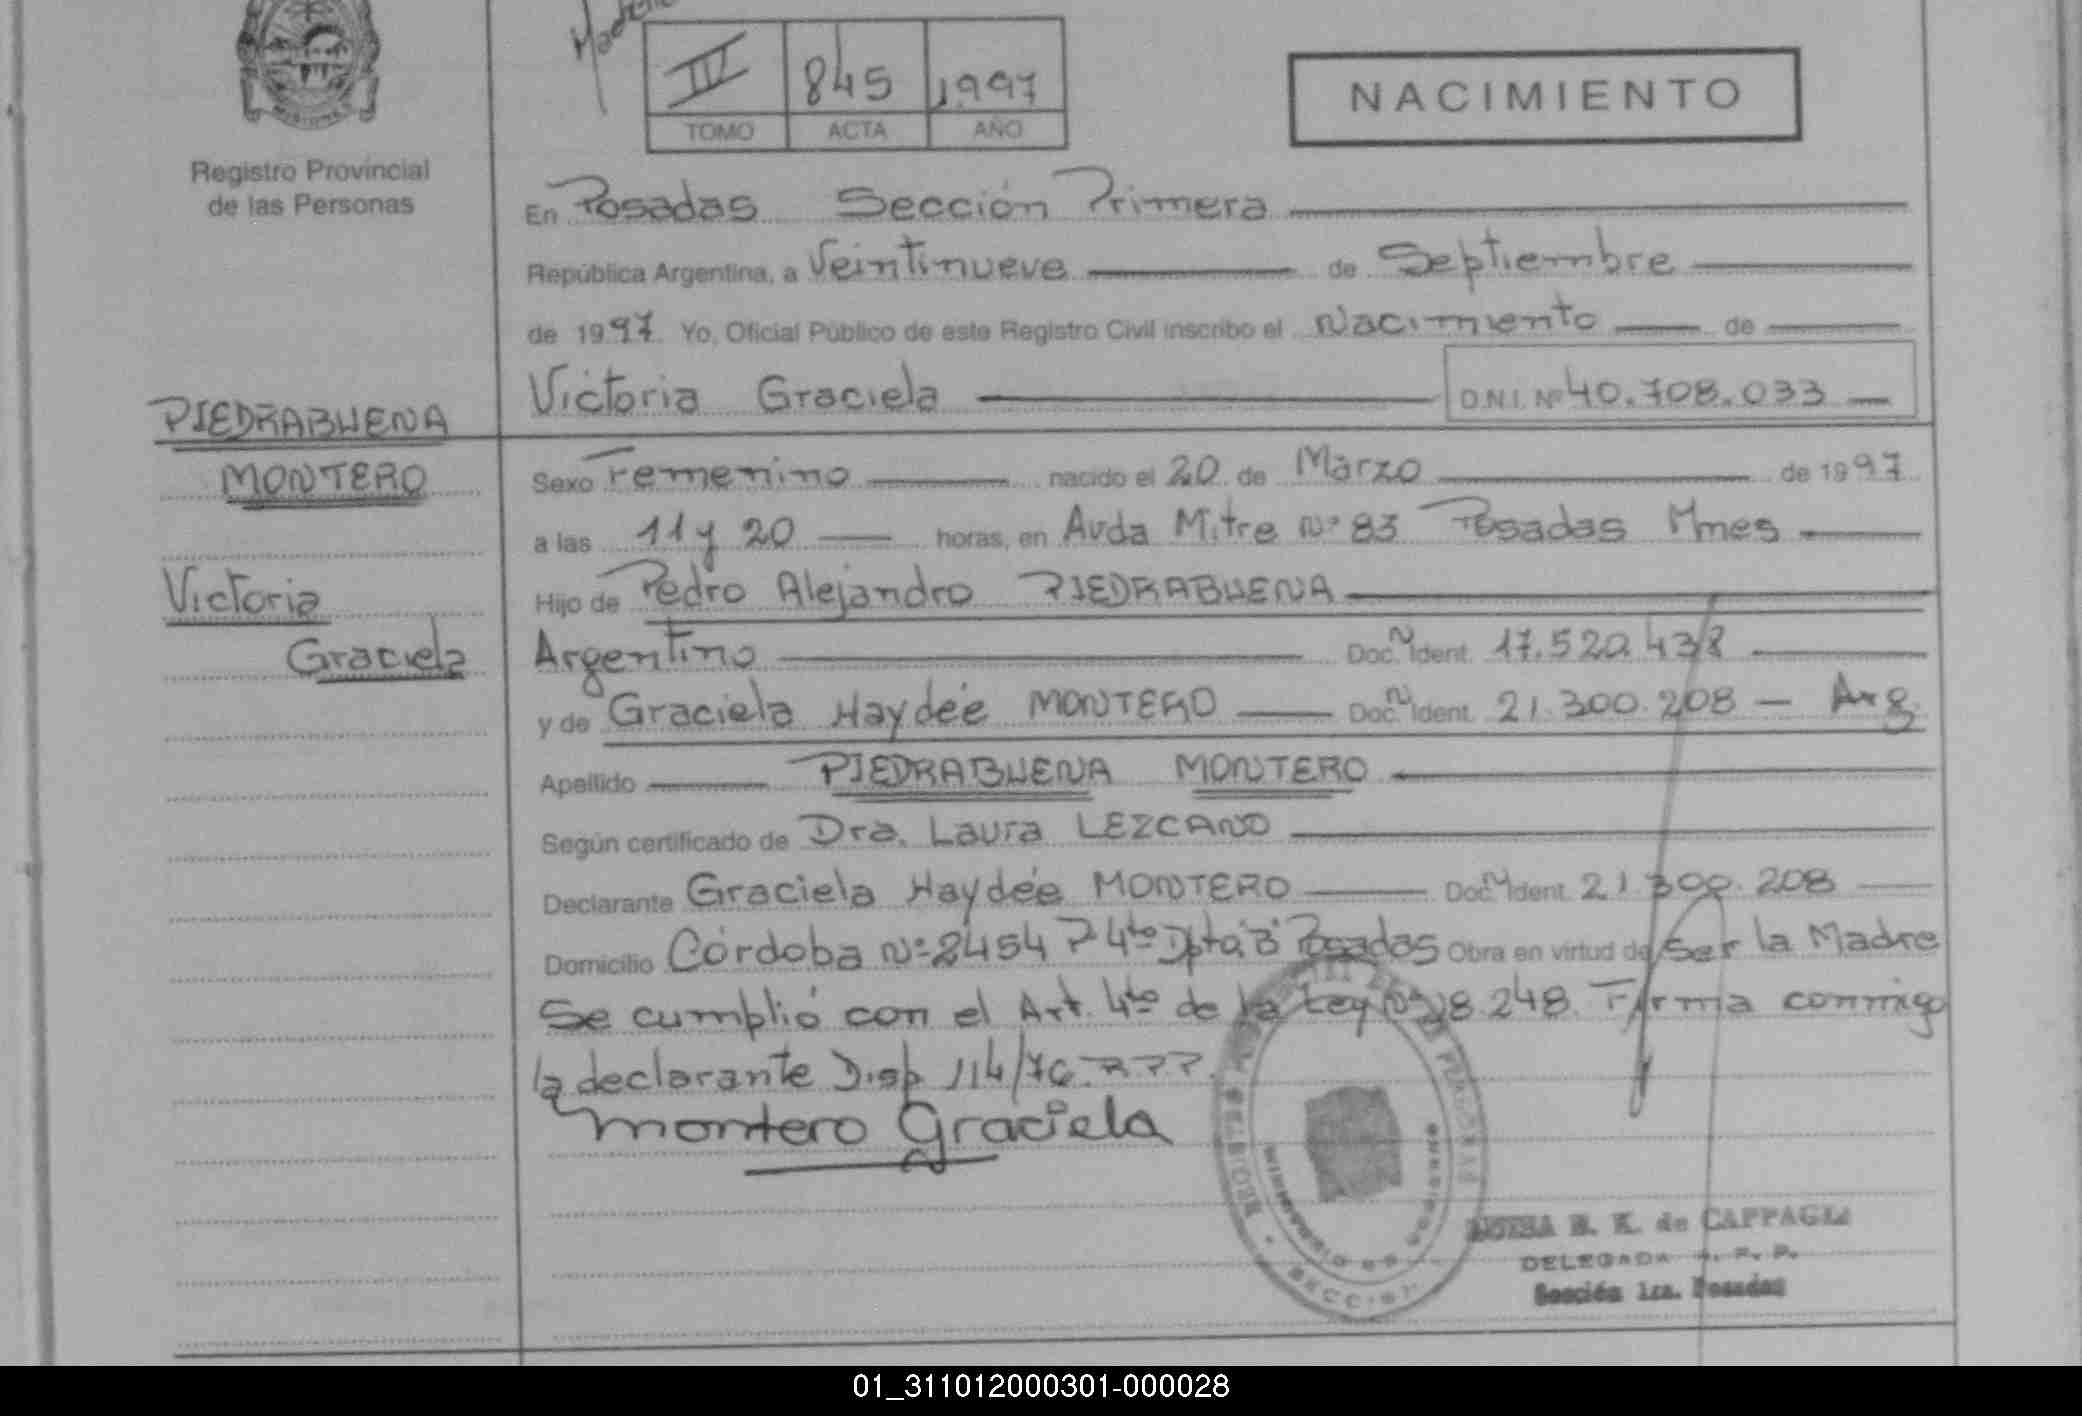 III 845 1997
TOMO ACTA AÑO
NACIMIENTO
Registro Provincial
de las Personas
En Posadas Sección Primera
República Argentina, a Veintinueve de Septiembre
de 1997 Yo, Oficial Público de este Registro Civil inscribo el Nacimiento de
Victoria Graciela D.N.I. Nº 40.708.033
PIEDRABUENA
MONTERO
Victoria
Graciela
Sexo Femenino nacido el 20 de Marzo de 1997
a las 11 y 20 horas, en Avda Mitre Nº 83 Posadas Mnes
Hijo de Pedro Alejandro PIEDRABUENA
Argentino Doc. N Ident. 17.520.438
y de Graciela Haydée MONTERO Doc. N Ident. 21.300.208 - Arg.
Apellido PIEDRABUENA MONTERO
Según certificado de Dra. Laura LEZCANO
Declarante Graciela Haydée MONTERO Doc. N Ident. 21.300.208
Domicilio Córdoba Nº 2454 P 4to Dpto "B" Posadas Obra en virtud de Ser la Madre
Se cumplió con el Art. 4to de la Ley Nº 18.248. Firma conmigo
la declarante Disp 114/76.
Montero Graciela
K. de CAPPAGLI
DELEGADA R. P. P.
Sección 1ra. Posadas
01_311012000301-000028